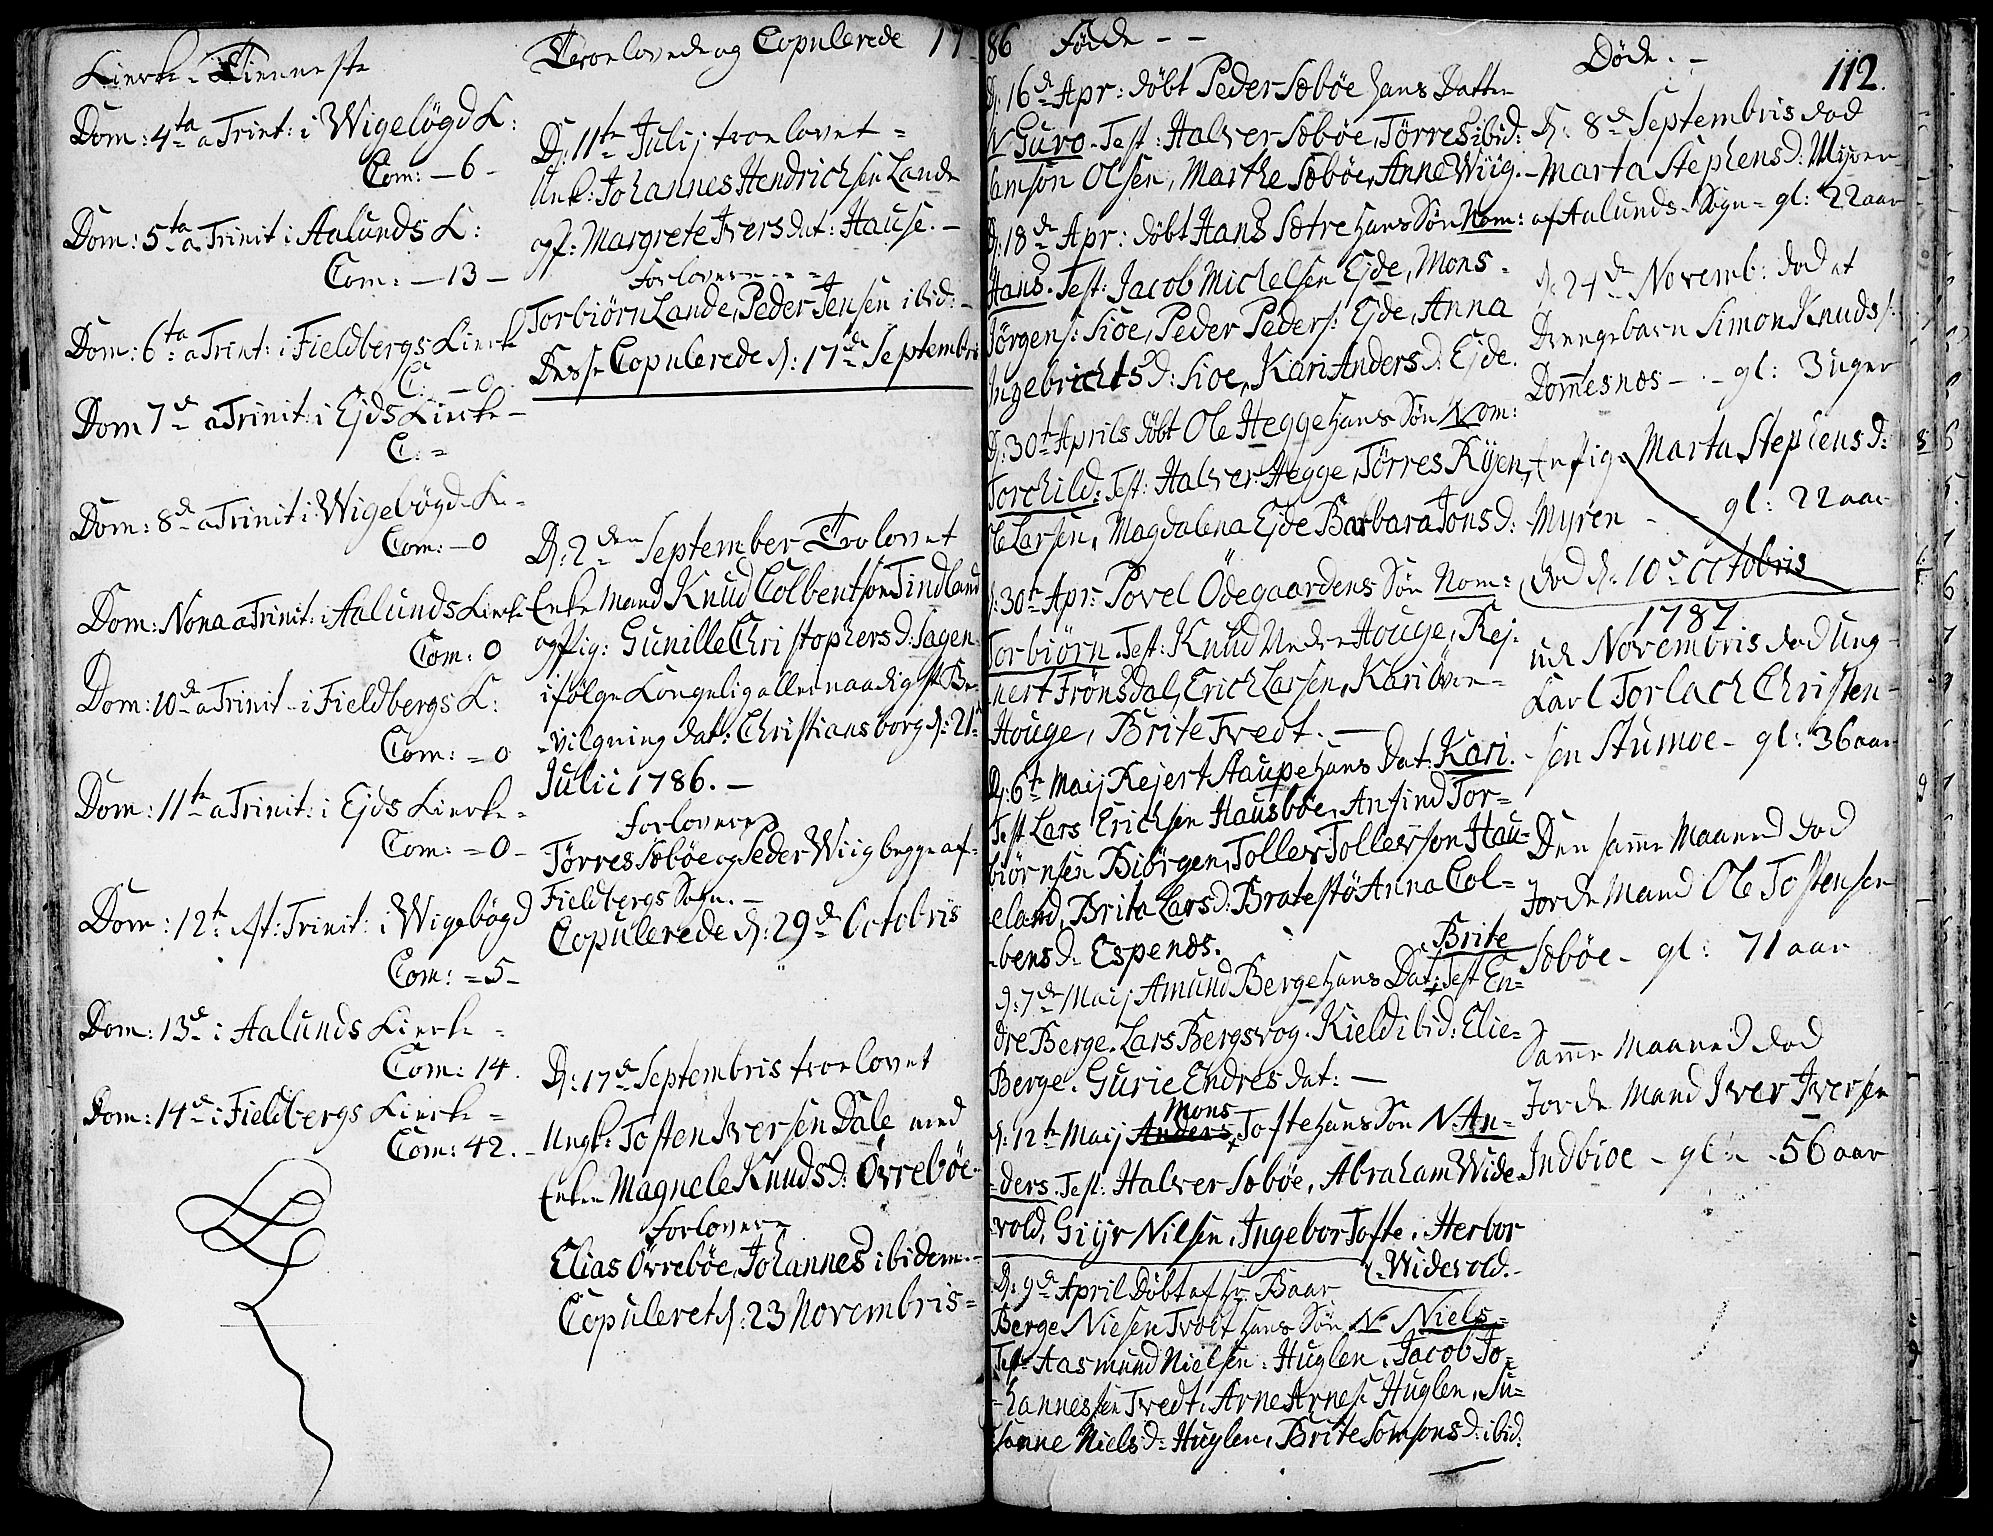 Kierke-Tienneste
Dom: 4ta a Trint: i Wigebögd K:
Com: - 6 -
Dom: 5ta a Trinit: i Aalunds K:
Com: - 13 -
Dom: 6ta a Trint: i Fieldbergs Kierke
C: - 0
Dom 7de a Trinit: i Ejds Kierke -
C: =
Dom: 8de a Trinit: i Wigebögd Ki-
Com: - 0
Dom: Nona a Trinit: i Aalunds Kierke
Com: 0
Dom: 10de a Trinit - i Fieldbergs K:
Com: = 0
Dom: 11te a Trinit: i Ejds Kierke =
Com: = 0 -
Dom: 12te Aft: Trinit: i Wigebögd
Com: = 5 -
Dom: 13de i Aalunds Kierke =
Com: 14.
Dom: 14de i Fieldbergs Kierke =
Com: 42. -
Troelovede og Copulerede 17
D: 11te Julij troelovet =
Unk: Johannes Hendrichsen Lande
og P: Margrete Iversdat: Hause. -
Forlovere - - =
Torbiörn Lande, Peder Jensen ibid: -
Disse Copulerede d: 17de Septembris
D: 2den September Trolovet
Enke Mand Knud Colbentsen Tindland
og Pig: Gunille Christophersd: Sagen
ifölge Kongelig allernaadigst Be-
-vilgning dat: Christiansborg d: 21de
Julii 1786. -
Forlovere
Törres Sæbøe og Peder Wiig begge af
Fieldbergs Sogn. -
Copulerede d: 29de Octobris
D: 17de Septembris troelovet
Ungk: Tosten Iversen Dale med
Enken Magnele Knudsd: Øvrebøe
Forlovere
Elias Øvrebøe, Johannes ibidem. -
Copuleret d: 23 Novembris =
86 Födde - -
D: 16de Apr: döbt Peder Sæbøe hans Datter
N Guro. Test: Halver Sæbøe, Törres ibid:
Samson Olsen, Marthe Sæbøe, Anne Wiig. -
D: 18de Apr: döbt Hans Sætre hans Sön Nom:
Hans. Test: Jacob Michelsen Ejde, Mons
Jörgens: Sioe, Peder Peders: Ejde, Anna
Ingebrichtsd: Sioe, Kari Andersd: Ejde.
D: 30te Aprils döbt Ole Hegge hans Sön Nom:
Torchild: Test: Halver Hegge, Törres Ryen,
Ole Larsen, Magdalena Ejde Barbara Jonsd:
D: 30te Apr: Povel Ödegaardens Sön Nom:
Torbiörn. Test: Knud Nedre Houge, Rej-
nert Frönsdal, Erich Larsen, Kari övre
Houge, Brite Tvedt. -
D: 6te Maij Rejert Staupe hans Dat: Kari.
Test Lars Erichsen Hausbøe, Anfind Tor=
biörnsen Biörgen, Tolles Tollevsen Hau=
eland, Brita Larsd: Bratestö Anna Col=
-bensd: Espenæs.
Brite
D: 7de Maij Amund Berge hans Dat: Test En=
dre Berge. Lars Bergsvog. Kield ibid: Elie=
Berge. Gurie Endresdat: -
Mons
D: 12te Maij Anders Tofte hans Sön N: An=
=ders. Test: Halver Sæbøe, Abraham Wide-
vold, Giyr Nilsen, Ingebor Tofte, Herbor
Widevold. -
D: 9de April Döbt af Hr: Baar
Berge Niesen Tvoit hans Sön N. Niels =
Test: Aasmund Nielsen Huglen, Jacob Jo=
hannessen Tvedt, Arne Arnes: Huglen, Su=
sanne Nielsd: Huglen, Brite Somsonsd: ibid:
Döde. -
112.
D: 8de Septembris död
Marta Stephensd: Myren
af Aalunds-Sogn - gl: 22 aar
D: 24de Novemb: död et
Drengebarn Simon Knuds:
Dommesnæs - - gl: 3 uger
Marta Stephensd:
Myren - - gl: 22 aar
död d: 10de Octobris
1787
ude Novembris död Ung-
Karl Torlach Christen-
sen Stumoe - gl: 36 aar
Den samme Maaned död
Jorde Mand Ole Tostensen
Sæbøe - gl: 71 aar
Samme Maaned död
Jorde Mand Iver Iversen
Indbioe - gl: - 56 aar